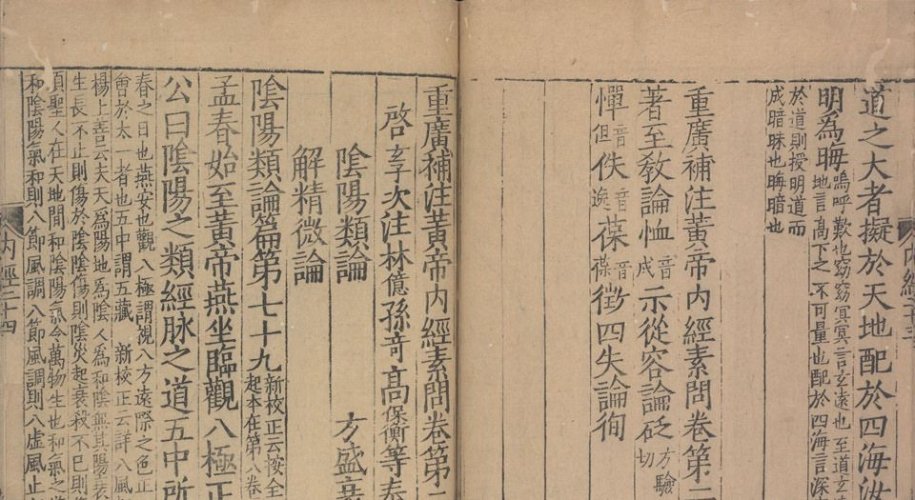 道之大者擬於天地配於四海汝
明為晦
嗚呼歎也窈窈冥冥言玄遠也至道玄
地言高下之不可量也配於四海言深
於道則授明道而
成暗昧也晦暗也
重廣補注黃帝内經素問卷第二
著至教論恤音戌示從容論砭方驗切
憚音但佚音逸葆音葆徵四失論徇
重廣補注黃帝内經素問卷第二
啓玄次注林億孫奇高保衡等奉
陰陽類論 方盛衰
解精微論
陰陽類論篇第七十九
新校正云按全
起本在第八卷
孟春始至黃帝燕坐臨觀八極正
公曰陰陽之類經脉之道五中所
春之日也燕安也觀八極謂視八方遠際之色正
會於太一者也五中謂五藏 新校正云詳八風
楊上善云夫天為陽地為陰人為和陰無其陽衰
生長不止則傷於陰陰傷則陰災起衰殺不巳則
須聖人在天地間和陰陽氣令萬物生也和氣之
和陰陽氣和則八節風調八節風調則八虛風止
内經二十四